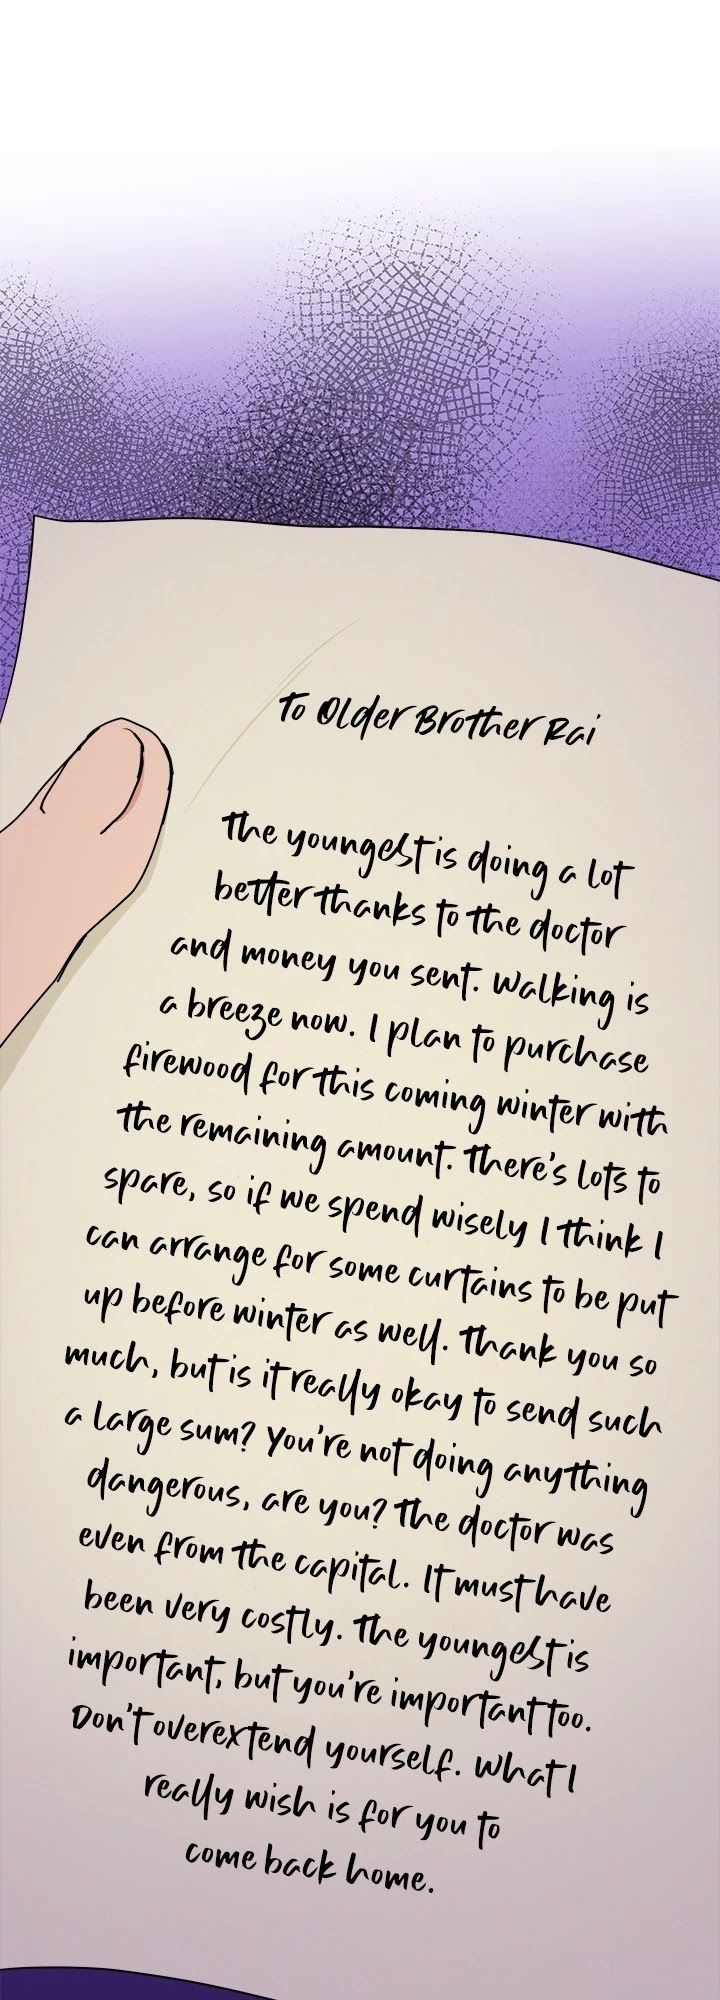 To Older Brother Rai
The youngest is doing a lot
better thanks to the doctor
and money you sent. Walking is
a breeze now. I plan to purchase
firewood for this coming winter with
the remaining amount. There's lots to
spare, so if we spend wisely I think I
can arrange for some curtains to be put
up before winter as well. Thank you so
much, but is it really okay to send such
a large sum? You're not doing anything
dangerous, are you? The doctor was
even from the capital. It must have
been very costly. The youngest is
important, but you're important too.
Don't overextend yourself. What I
really wish is for you to
come back home.